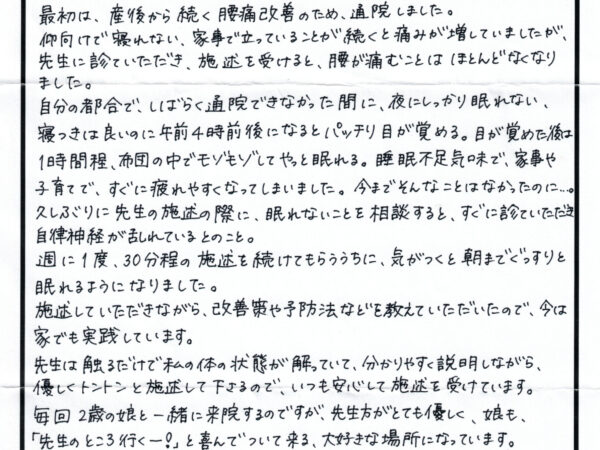 最初は、産後から続く腰痛改善のため、通院しました。
仰向けで寝れない、家事で立っていることが続くと痛みが増していましたが、
先生に診ていただき、施述を受けると、腰が痛むことは ほとんどなくなり
ました。
自分の都合で、しばらく通院できなかった間に、夜にしっかり眠れない、
寝つきは良いのに午前4時前後になるとパッチリ目が覚める。目が覚めた後は
1時間程、布団の中でモゾモゾしてやっと眠れる。睡眠不足気味で、家事や
子育てで、すぐに疲れやすくなってしまいました。今までそんなことはなかったのに…。
久しぶりに先生の施述の際に、眠れないことを相談すると、すぐに診ていただき
自律神経が乱れているとのこと。
週に1度、30分程の施述を続けてもらううちに、気がつくと朝までぐっすりと
眠れるようになりました。
施述していただきながら、改善策や予防法などを教えていただいたので、今は
家でも実践しています。
先生は触るだけで私の体の状態が解っていて、分かりやすく説明しながら、
優しくトントンと施述して下さるので、いつも安心して施述を受けています。
毎回2歳の娘と一緒に来院するのですが、先生方がとても優しく、娘も、
「先生のところ行くー!」と喜んでついて来る、大好きな場所になっています。